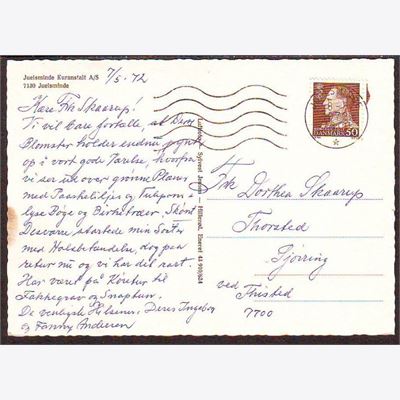 Juelsminde Kuranstalt A/S
7130 Juelsminde
7/5-72
Kære Frk Skaarup!
Vi vil bare fortælle, at Deres
Blomster holder endnu, pynter
op i vort gode Værelse, hvorfra
vi ser ud over grønne Plæner
med Paaskeliljer og Tulipaner
lyse Bøge og Birketræer. Skønt
Desværre startede min Søster
med Halsbetændelse, dog paa
retur nu og vi har det rart.
Har været på Køretur til
Fakkegrav og Snaptun.
De venligste Hilsener, Deres Ingeborg
og Fanny Andersen
Luftfoto: Sylvest Jensen — Hillerød. Eneret 44 990/634
DANMARK 50
Frk Dorthea Skaarup
Thorsted
Sjørring
ved Thisted
7700